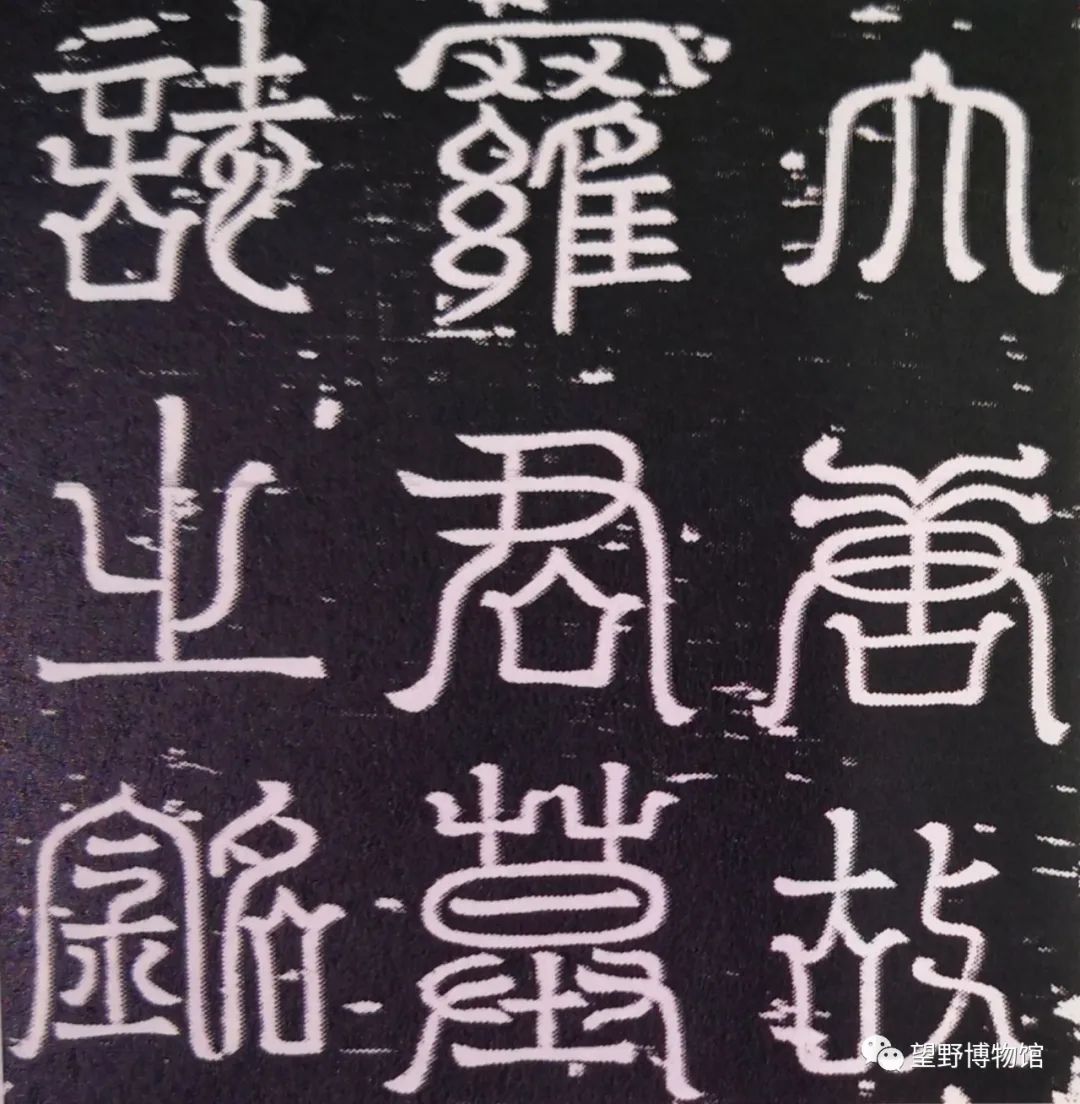 大唐故
羅君墓
誌之銘
望野博物馆